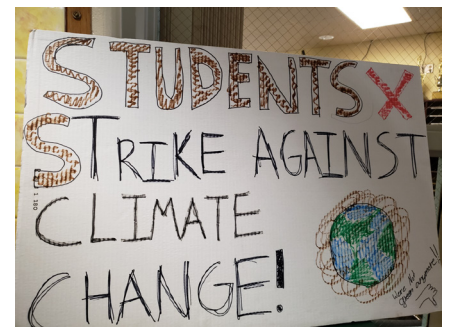 STUDENTS X
STRIKE AGAINST
CLIMATE
CHANGE!